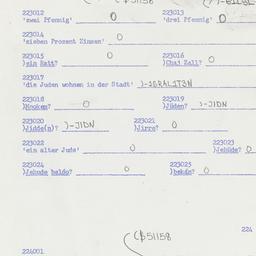 (₵51158
223012 223013
'zwei Pfennig' 0 'drei Pfennig' 0
223014
'sieben Prozent Zinsen' 0
223015 223016
)ein Beit? 0 )Chai Zall? 0
223017
'die Juden wohnen in der Stadt' )-ISRALIT3N
223018 223019
)Knokem? 0 )Jüden? )-JIDN
223020 223021
)Jidde(n)? )-JIDN )Jirre? 0
223022 223023
'ein alter Jude' 0 )Jehüde? 0
223024 223025
)Jehude 0 )bekân? 0
(₵51158
224
224001